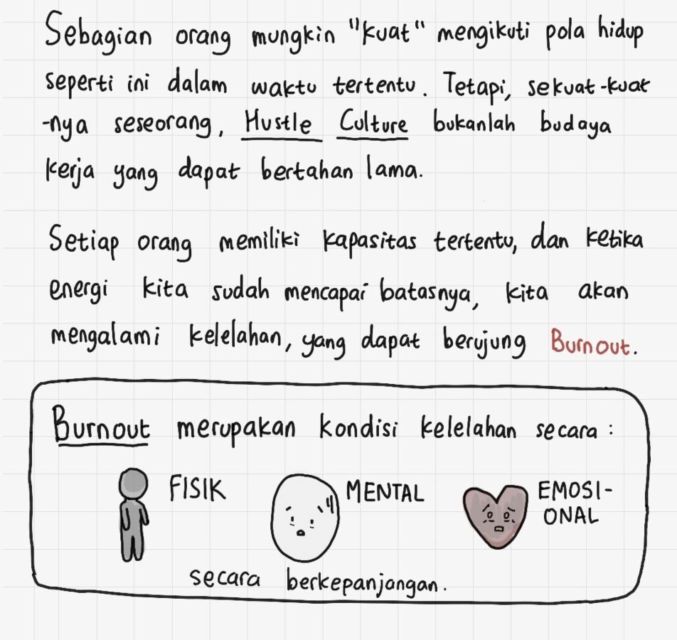 Sebagian orang mungkin "kuat" mengikuti pola hidup
seperti ini dalam waktu tertentu. Tetapi, sekuat-kuat
-nya seseorang, Hustle Culture bukanlah budaya
kerja yang dapat bertahan lama.
Setiap orang memiliki kapasitas tertentu, dan ketika
energi kita sudah mencapai batasnya, kita akan
mengalami kelelahan, yang dapat berujung Burnout.
Burnout merupakan kondisi kelelahan secara :
FISIK
MENTAL
EMOSI-
ONAL
secara berkepanjangan.